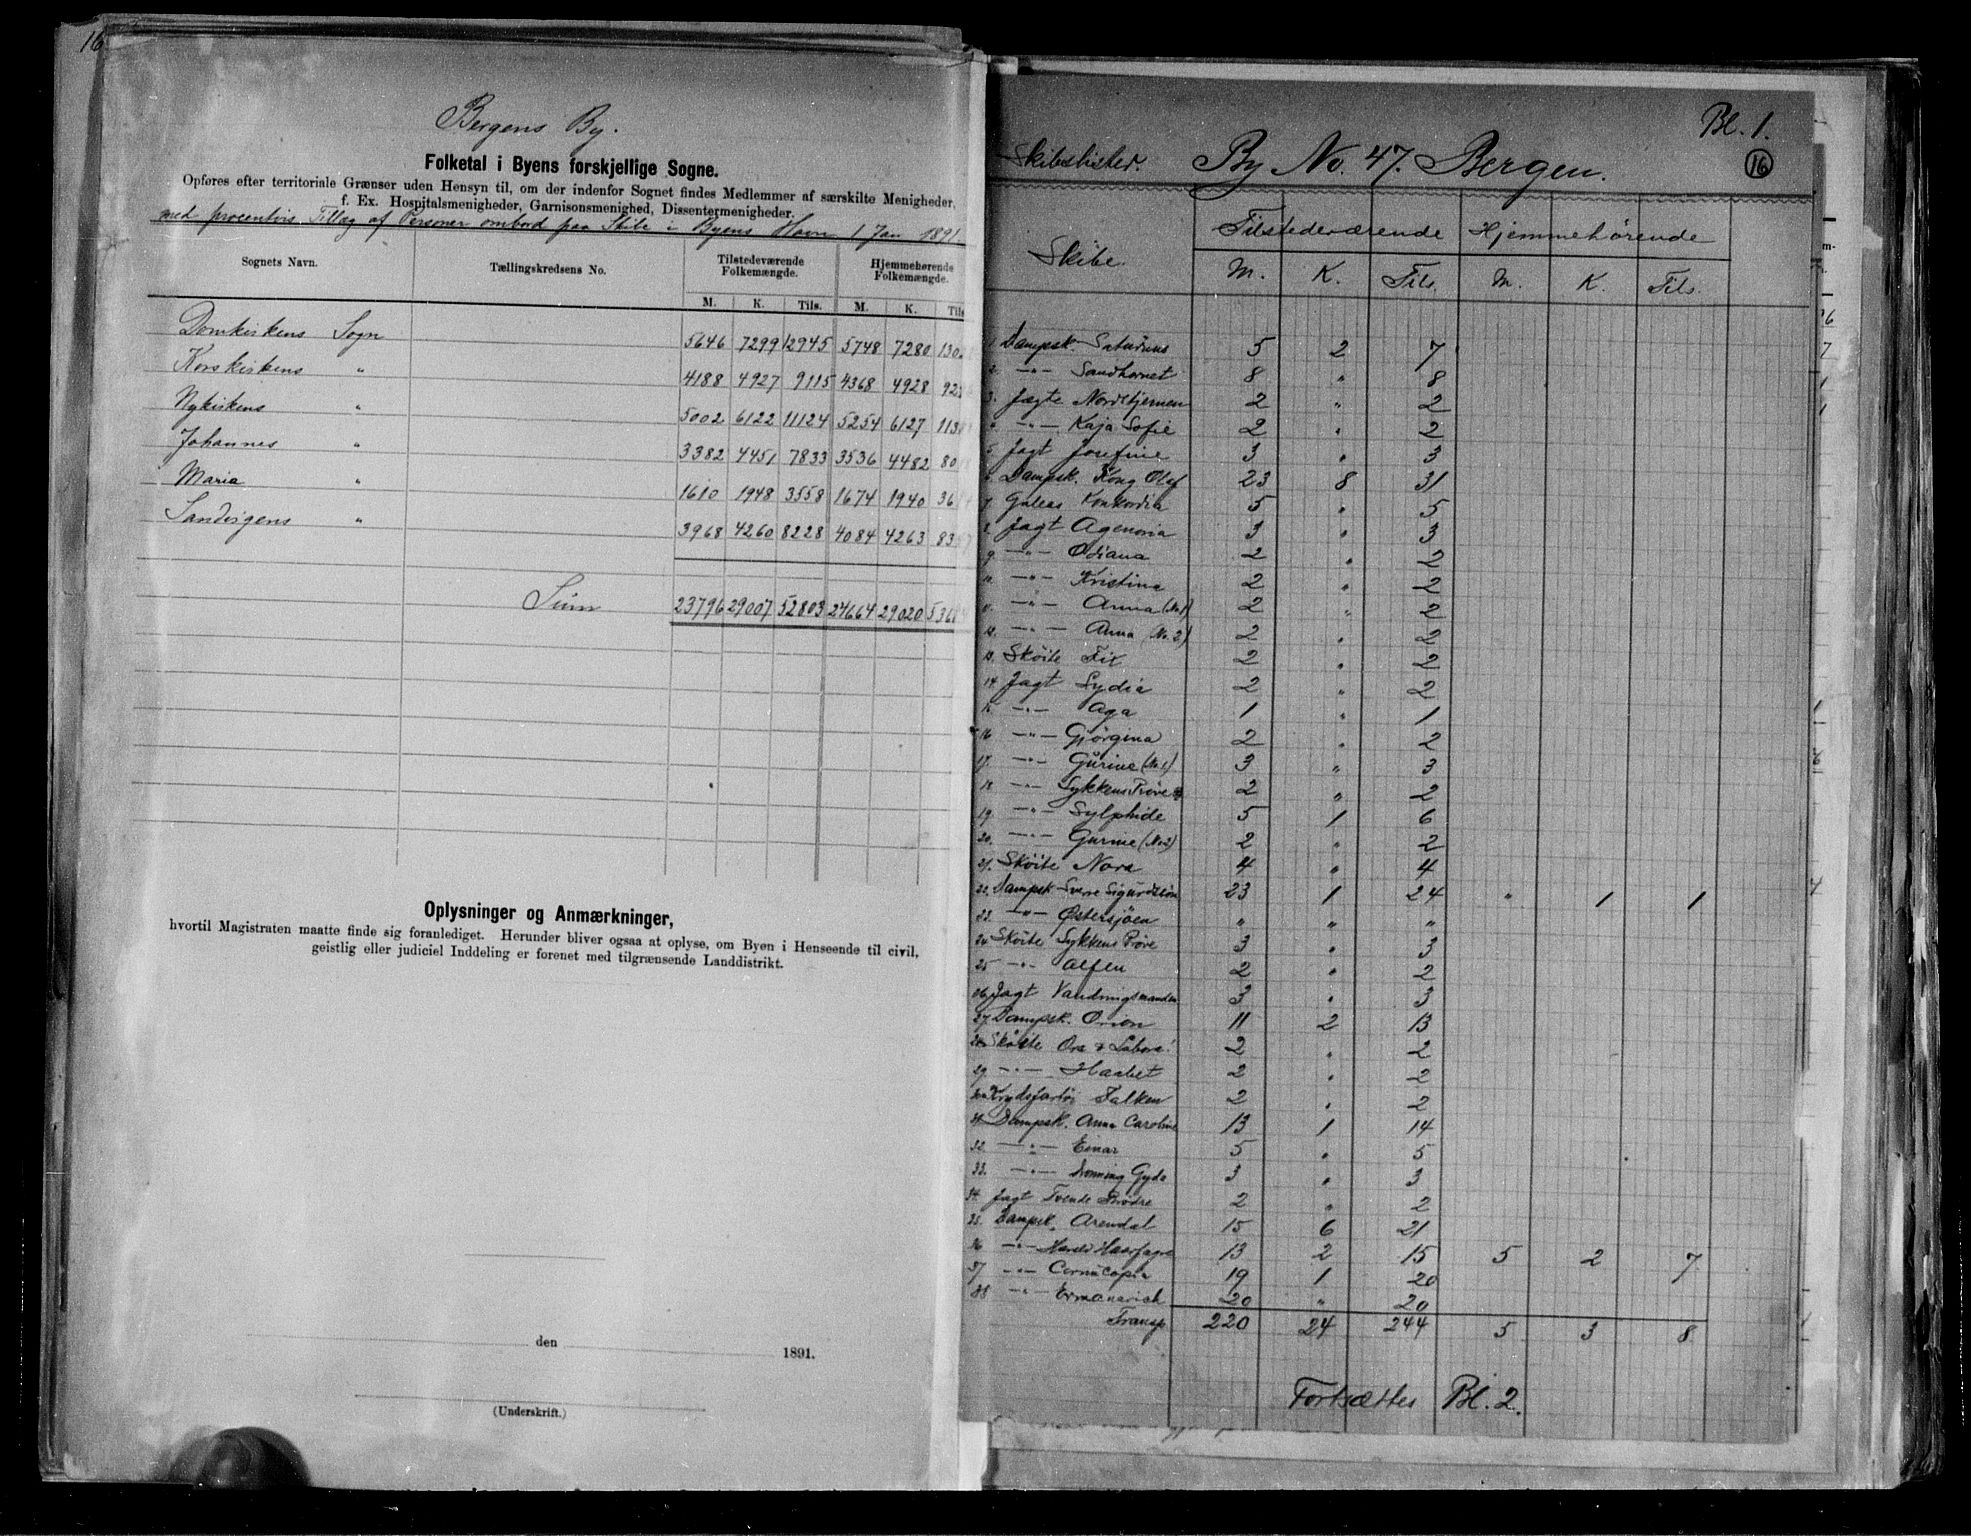 16
Bergens By.
Folketal i Byens forskjellige Sogne.
Opføres efter territoriale Grænser uden Hensyn til, om der indenfor Sognet findes Medlemmer af særskilte Menigheder,
f. Ex. Hospitalsmenigheder, Garnisonsmenighed, Dissentermenigheder.
med procentvis Tillæg af Personer ombord paa Skibe i Byens Havn 1 Jan 1891
Sognets Navn. Tællingskredsens No. Tilstedeværende Folkemængde. Hjemmehørende Folkemængde.
M. K. Tils. M. K. Tils
Domkirkens Sogn 5646 7299 12945 5748 7280 130
Korskirkens „ 4188 4927 9115 4368 4928 92
Nykirkens „ 5002 6122 11124 5254 6127 113
Johannes „ 3382 4451 7833 3536 4482 80
Maria „ 1610 1948 3558 1674 1940 36
Sandvigens „ 3968 4260 8228 4084 4263 83
Sum 23796 29007 52803 24664 29020 536
Oplysninger og Anmærkninger,
hvortil Magistraten maatte finde sig foranlediget. Herunder bliver ogsaa at oplyse, om Byen i Henseende til civil,
geistlig eller judiciel Inddeling er forenet med tilgrænsende Landdistrikt.
den 1891.
(Underskrift.)
Bl. 1.
Skibslister. By No. 47. Bergen. 16
Skibe. Tilstedeværende Hjemmehørende
M. K. Tils. M. K. Tils
1. Dampsk. Saturnus 5 2 7
2. —„— Sandhornet 8 „ 8
3. Jagte Nordstjernen 2 „ 2
4. —„— Kaja Sofie 2 „ 2
5. Jagt Josefine 3 „ 3
6. Dampsk. Kong Olaf 23 8 31
7. Galeas Konkordia 5 „ 5
8. Jagt Agenoria 3 „ 3
9. —„— Ødiana 2 „ 2
10. —„— Kristina 2 „ 2
11. —„— Anna (No.1) 2 „ 2
12. —„— Anna (No. 2) 2 „ 2
13. Skøite Fix 2 „ 2
14. Jagt Lydia 2 „ 2
15. —„— Aga 1 „ 1
16 —„— Gjørgina 2 „ 2
17. —„— Gurine (No.1) 3 „ 3
18 —„— Lykkens Prøve 2 „ 2
19. —„— Sylphide 5 1 6
20. —„— Gurine (No2) 2 „ 2
21. Skøite Nora 4 „ 4
22. Dampsk Sverre Sigurdssøn 23 1 24 „ 1 1
23. —„— Østersjøen „ „ „
24 Skøite Lykkens Prøve 3 „ 3
25 —„— Alfen 2 „ 2
26. Jagt Vandringsmanden 3 „ 3
27. Dampsk. Orion 11 2 13
28 Skøite Ora & Labora! 2 „ 2
29. —„— Haabet 2 „ 2
30. Krydsfartøi Falken 2 „ 2
31. Dampsk. Anna Caroline 13 1 14
32. —„— Einar 5 „ 5
33. —„— Dronning Gyda 3 „ 3
34. Jagt Tvende Brødre 2 „ 2
35. Dampsk. Arendal 15 6 21
36 —„— Harald Haarfagre 13 2 15 5 2 7
37 —„— Cornucopia 19 1 20
38 —„— Ermanarich 20 „ 20
Transp 220 24 244 5 3 8
Fortsættes Bl. 2.